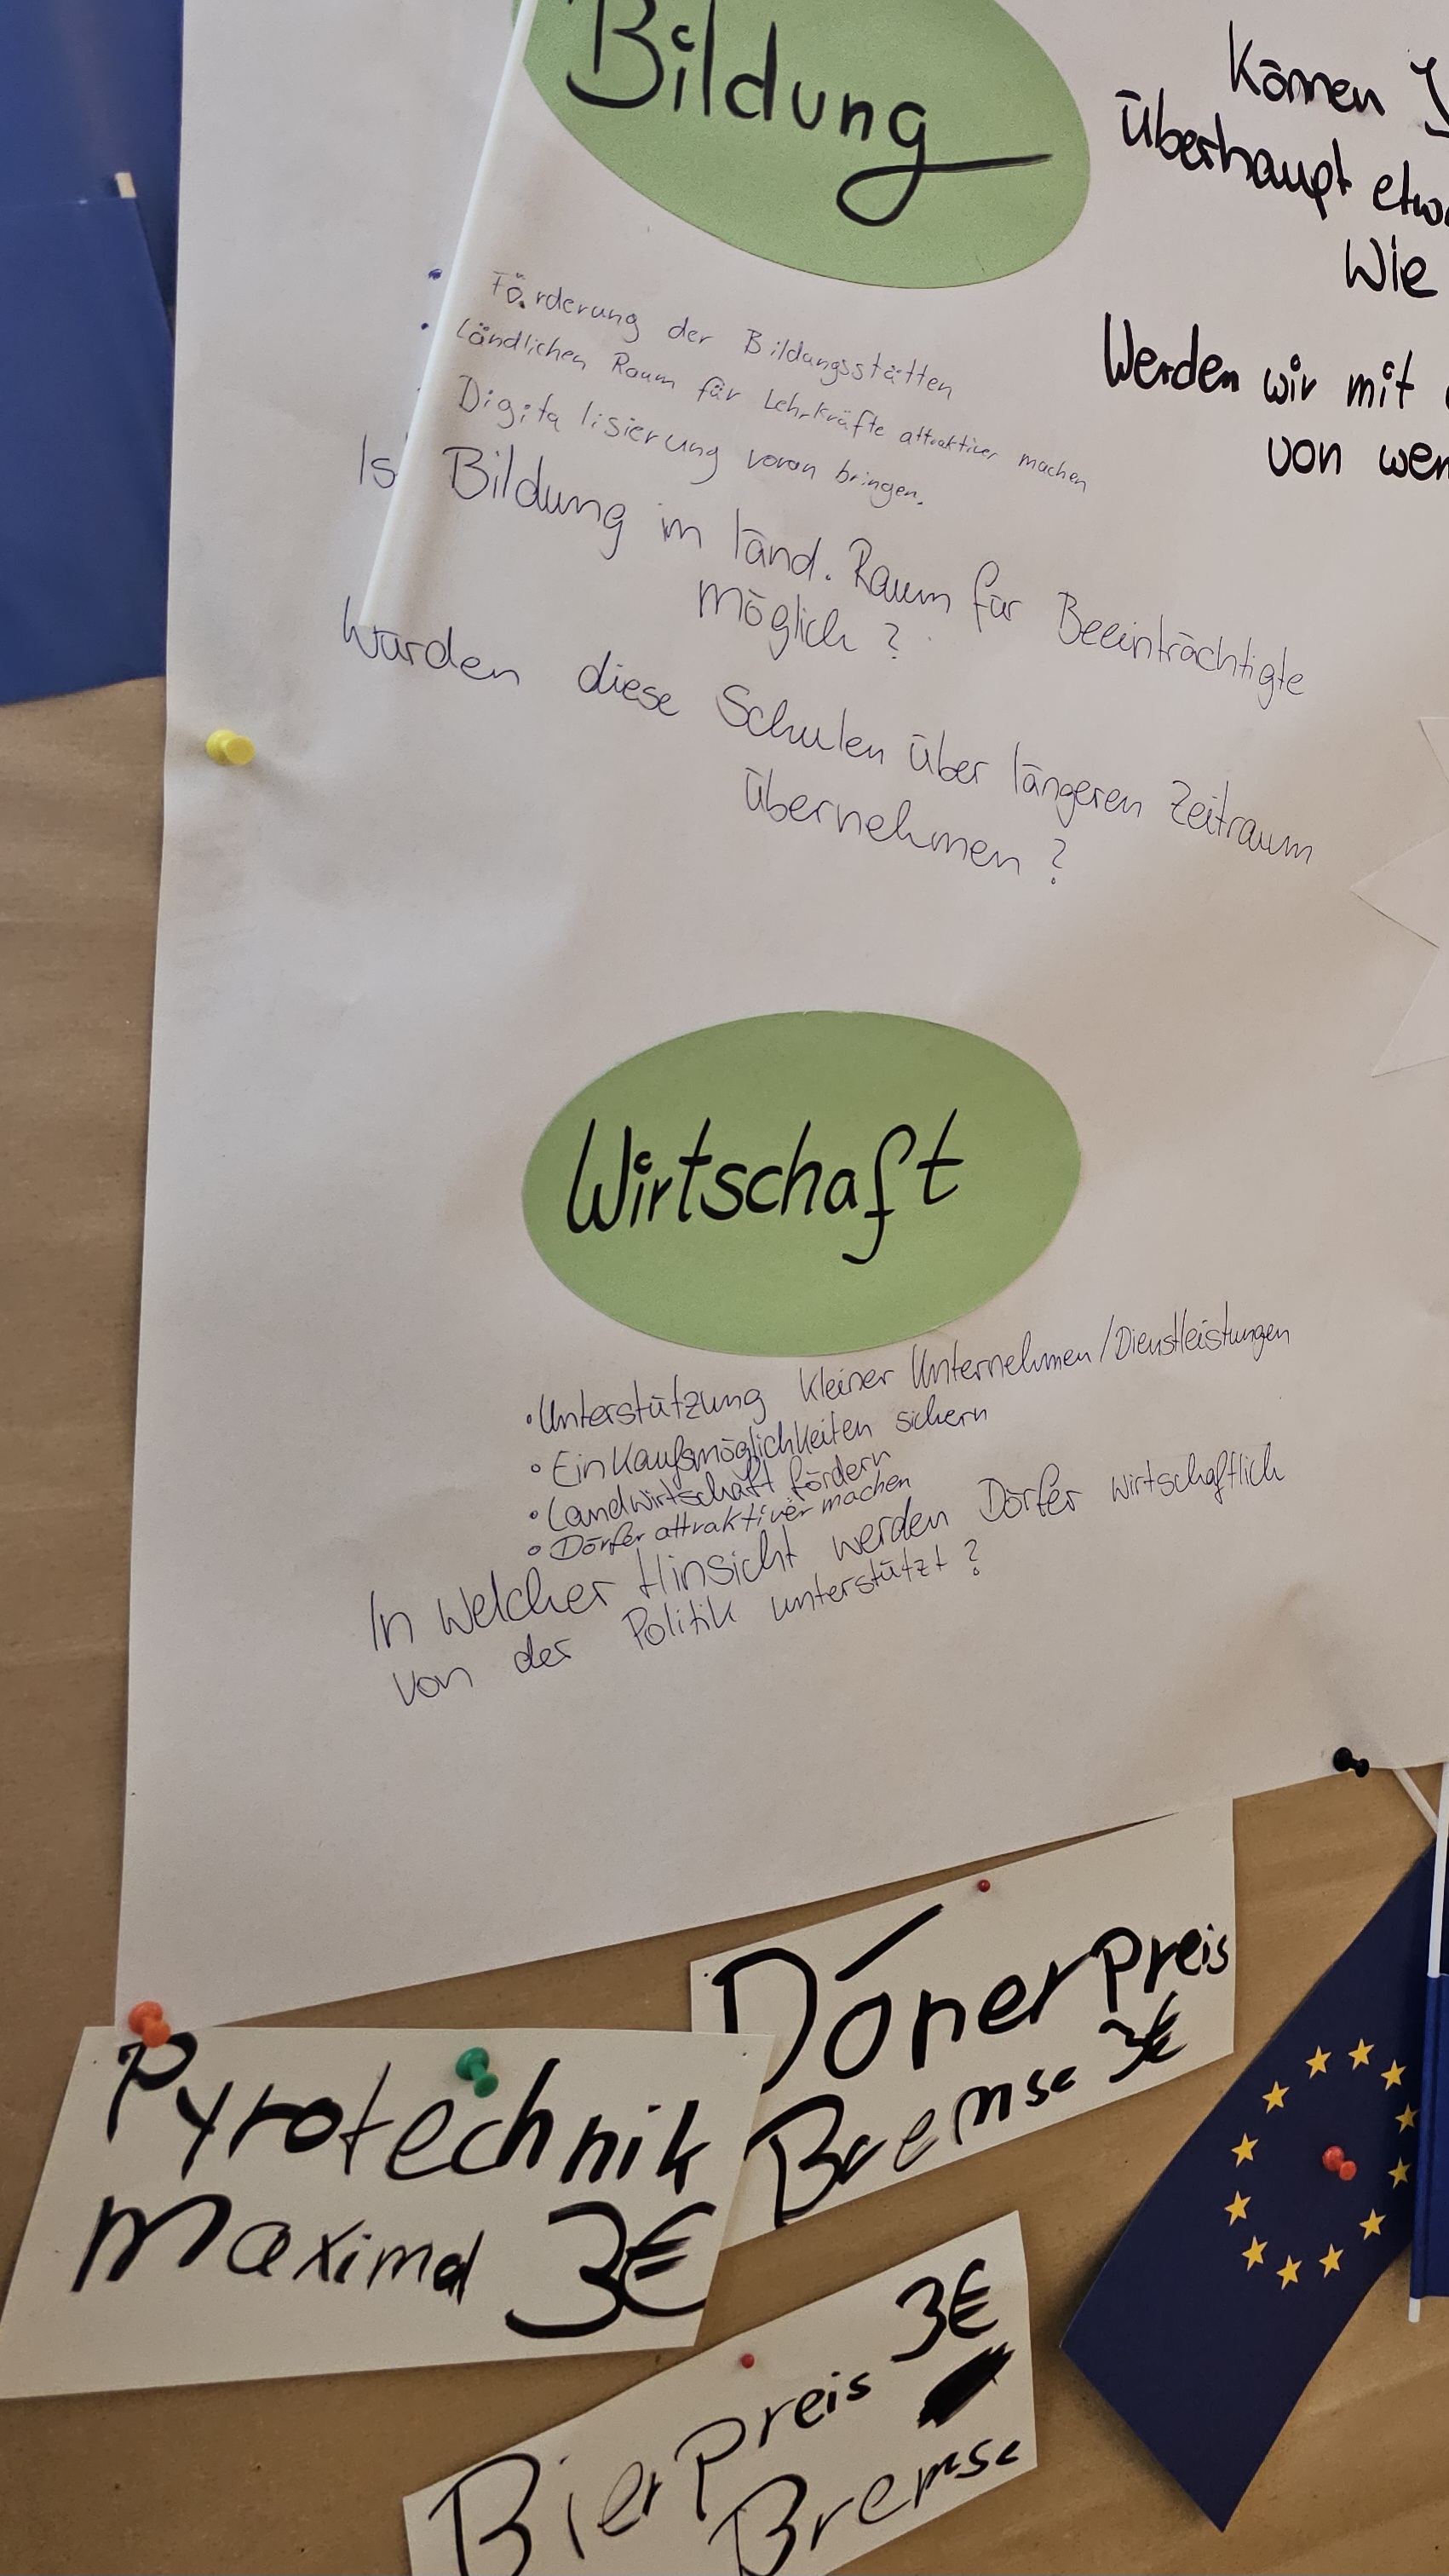 Bildung
Können
überhaupt
Wie
Werden wir mit
von
• Förderung der Bildungsstätten
• Ländlichen Raum für Lehrkräfte attraktiver machen
Digitalisierung voran bringen.
Bildung im länd. Raum für Beeinträchtigte
möglich?
Würden diese Schulen über längeren Zeitraum
übernehmen?
Wirtschaft
• Unterstützung kleiner Unternehmen/Dienstleistungen
• Einkaufsmöglichkeiten sichern
• Landwirtschaft fördern
• Dörfer attraktiver machen
In welcher Hinsicht werden Dörfer wirtschaftlich
von der Politik unterstützt?
Döner Preis
Bremse 3€
Pyrotechnik
Maximal 3€
Bier Preis 3€
Bremse